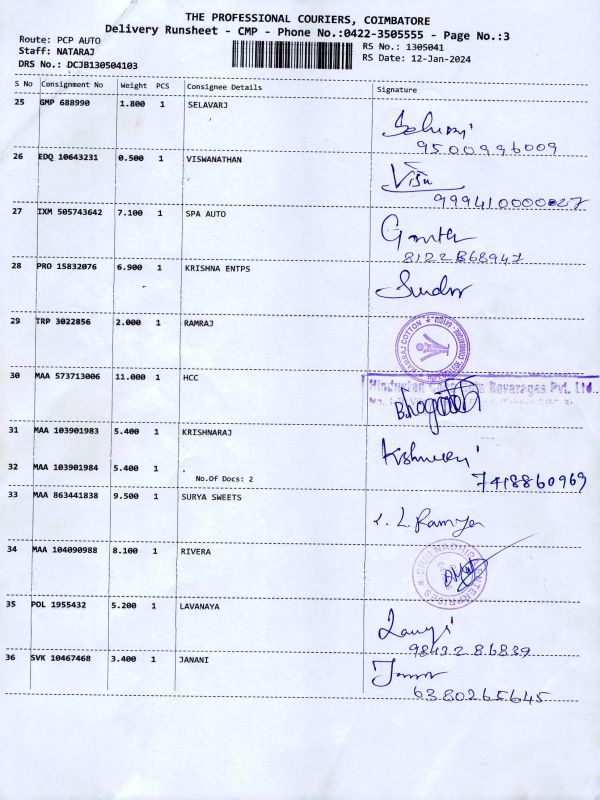 THE PROFESSIONAL COURIERS, COIMBATORE
Delivery Runsheet - CMP - Phone No.:0422-3505555 - Page No.:3
Route: PCP AUTO
RS No.: 1305041
Staff: NATARAJ
RS Date: 12-Jan-2024
DRS No.: DCJB130504103
S No Consignment No Weight PCS Consignee Details Signature
25 GMP 688990 1.800 1 SELAVARJ
9500996009
26 EDQ 10643231 0.500 1 VISWANATHAN Visu
27 IXM 505743642 7.100 1 SPA AUTO
8122868947
28 PRO 15832076 6.900 1 KRISHNA ENTPS
29 TRP 3022856 2.000 1 RAMRAJ
RAMRAJ COTTON
30 MAA 573713006 11.000 1 HCC
Hindustan Beverages Pvt. Ltd.
31 MAA 103901983 5.400 1 KRISHNARAJ
32 MAA 103901984 5.400 1 .
No.Of Docs: 2
7418860969
33 MAA 863441838 9.500 1 SURYA SWEETS
L. Ramya
34 MAA 104090988 8.100 1 RIVERA
ENTERPRISES
35 POL 1955432 5.200 1 LAVANAYA
36 SVK 10467468 3.400 1 JANANI
6380265645